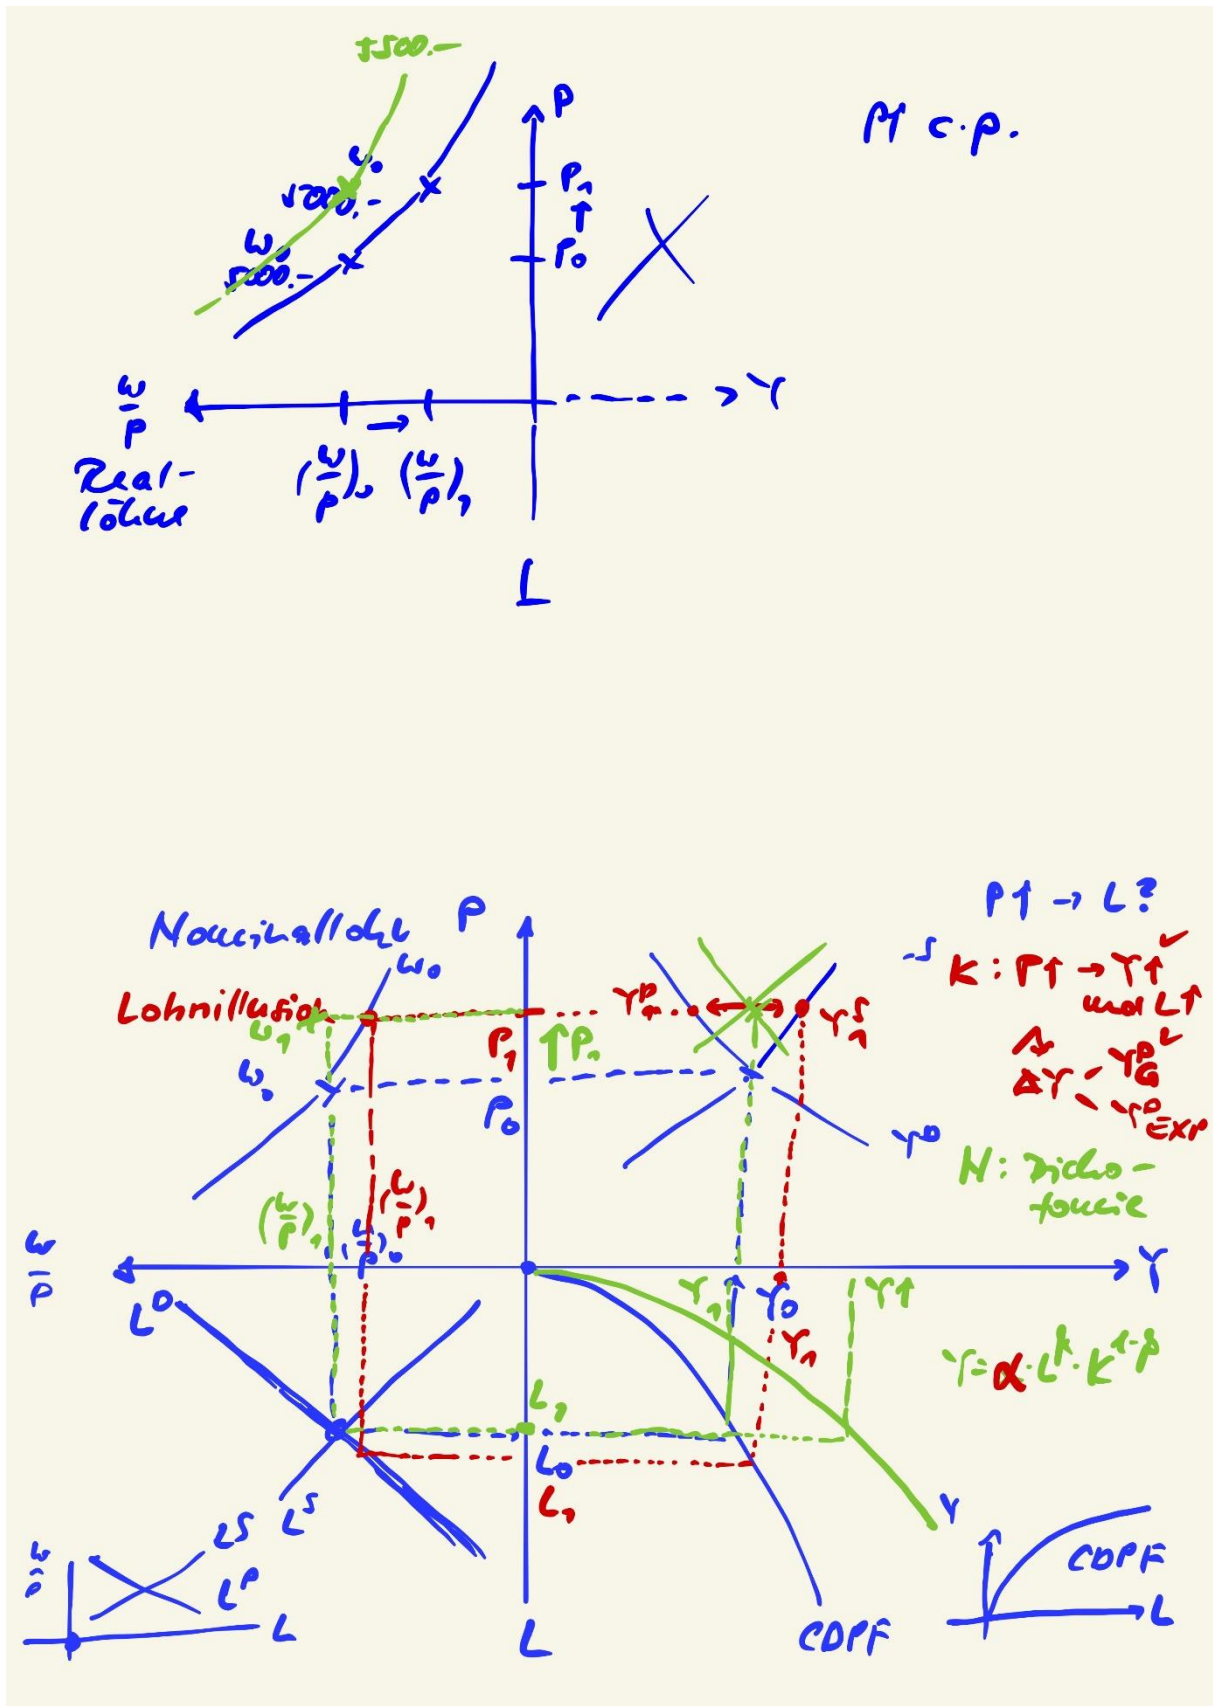 5500.-
P
P↑ c.p.
W₀
5000.-
P₁
↑
W₀
5000.-
P₀
W/P
Y
Real-
löhne
(W/P)₀ → (W/P)₁
L
P↑ → L?
Nominallohn
P
W₀
K: P↑ → Y↑ ✓
und L↑
Lohnillusion
W₁
P₁
↑P₁
Y₁ᴰ
Y₁ˢ
W₀
P₀
ΔY < Yᴰ_G ✓
Yᴰ_EXP
Yᴰ
N: Dicho-
tomie
(W/P)₁
(W/P)₁
(W/P)₀
W/P
Y
Lᴰ
Y₁
Y₀
Y↑
Y₁
Y=α·Lᵝ·K¹⁻ᵝ
L₁
L₀
L₁
Lˢ
Y
W/P
Lˢ
Lᴰ
L
L
CDPF
CDPF
L